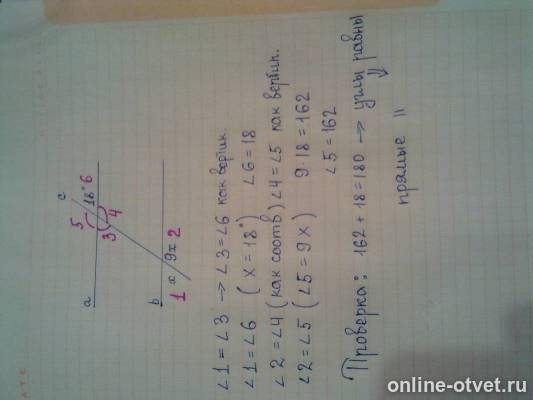 a
5
c
18° 6
3
4
b
1 x 9x 2
∠1 = ∠3 → ∠3 = ∠6 как вертик.
∠1 = ∠6 ( x = 18°) ∠6 = 18
∠2 = ∠4 (как соотв) ∠4 = ∠5 как вертик.
∠2 = ∠5 ( ∠5 = 9x ) 9·18 = 162
∠5 = 162
Проверка: 162 + 18 = 180 → углы равны
⇓
прямые ||
online-otvet.ru